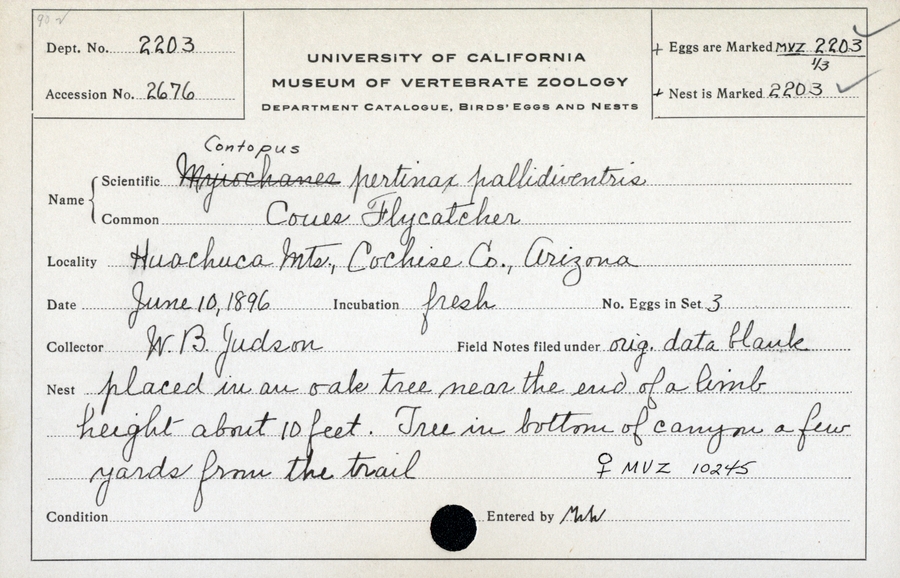 90 ✓
Dept. No. 2203
Accession No. 2676
UNIVERSITY OF CALIFORNIA
MUSEUM OF VERTEBRATE ZOOLOGY
DEPARTMENT CATALOGUE, BIRDS' EGGS AND NESTS
+ Eggs are Marked MVZ 2203 ✓
1/3
+ Nest is Marked 2203 ✓
Contopus
Name
Scientific Myiochanes pertinax pallidiventris
Common Coues Flycatcher
Locality Huachuca Mts., Cochise Co., Arizona
Date June 10, 1896 Incubation fresh No. Eggs in Set 3
Collector W. B. Judson Field Notes filed under orig. data blank
Nest placed in an oak tree near the end of a limb
height about 10 feet. Tree in bottom of canyon a few
yards from the trail ♀ MVZ 10245
Condition Entered by